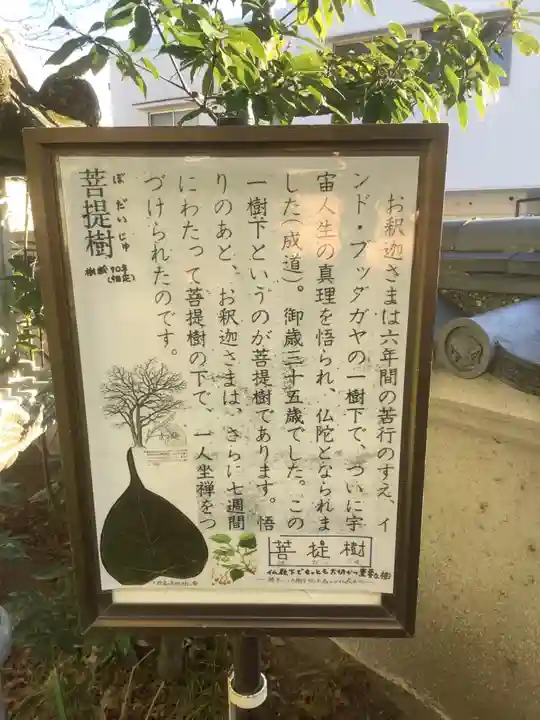 菩提樹
ぼだいじゅ
樹齢70年
(推定)
お釈迦さまは六年間の苦行のすえ、イ
ンド・ブッダガヤの一樹下で、ついに宇
宙人生の真理を悟られ、仏陀となられま
した（成道）。御歳三十五歳でした。この
一樹下というのが菩提樹であります。悟
りのあと、お釈迦さまは、さらに七週間
にわたって菩提樹の下で、一人坐禅をつ
づけられたのです。
菩提樹
仏教下でもっとも大切かつ重要な樹